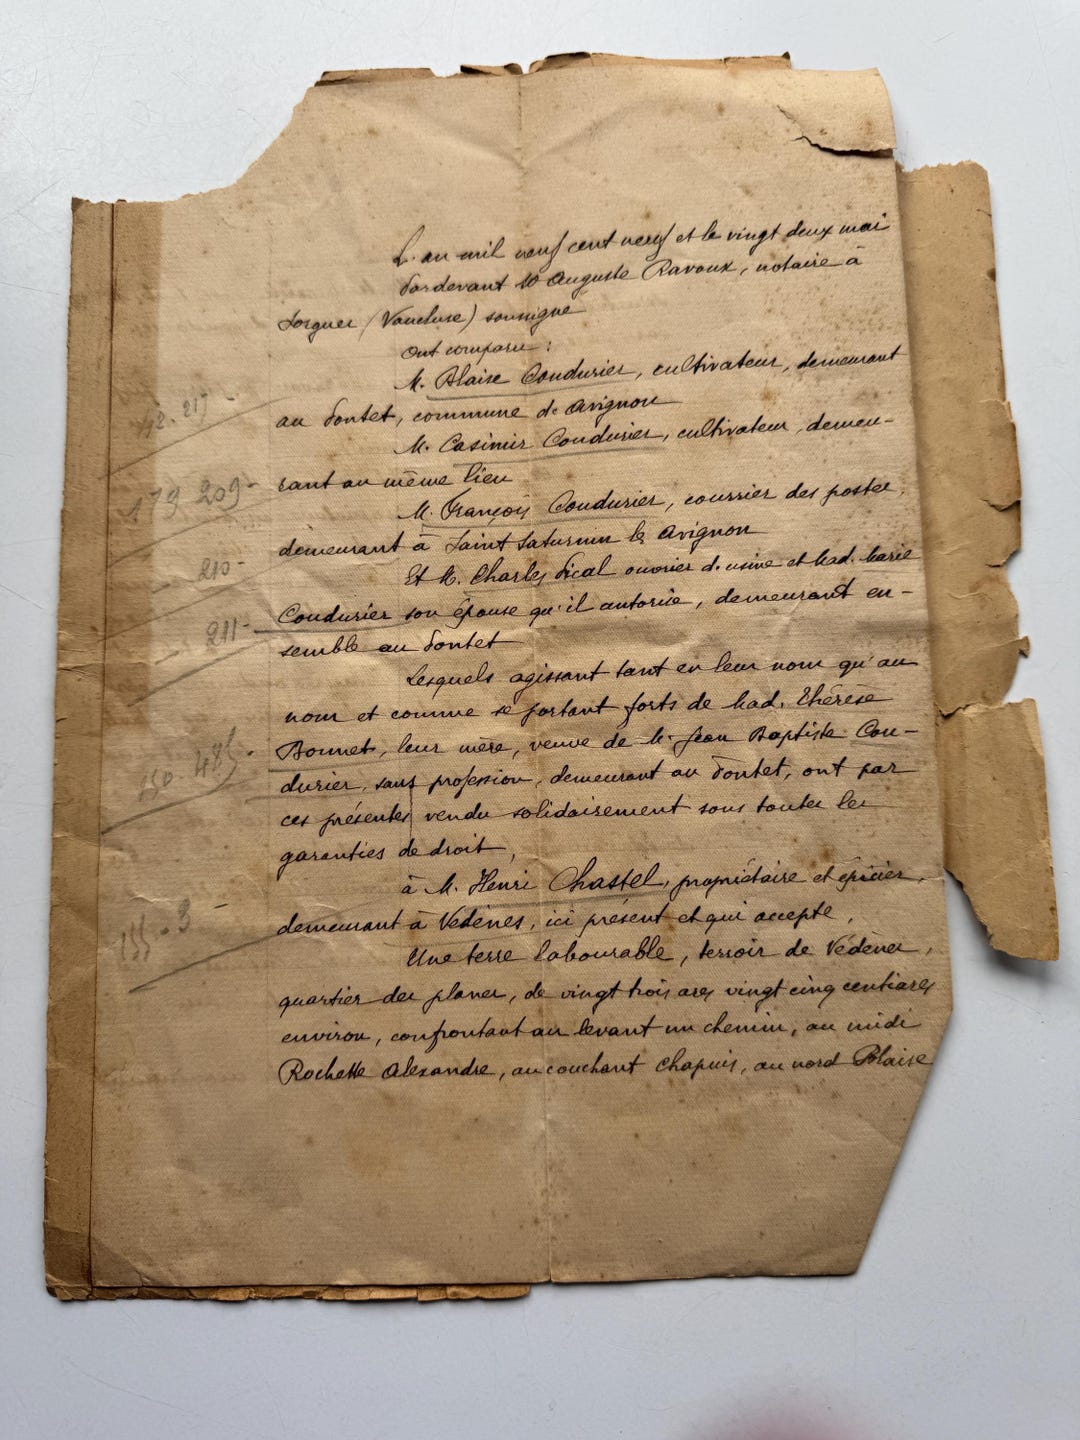 L'an mil neuf cent neuf et le vingt deux mai
Pardevant Me Auguste Ravoux, notaire à
Sorgues (Vaucluse) soussigné
Ont comparu :
M. Blaise Condurier, cultivateur, demeurant
au Pontet, commune de Avignon
M. Casimir Condurier, cultivateur, demeu-
rant au même lieu
M. François Condurier, courrier des postes,
demeurant à Saint Saturnin les Avignon
Et M. Charles Pical ouvrier d'usine et Mad. Marie
Condurier son épouse qu'il autorise, demeurant en-
semble au Pontet
Lesquels agissant tant en leur nom qu'au
nom et comme se portant forts de Mad. Thérèse
Bonnet, leur mère, veuve de M. Jean Baptiste Con-
durier, sans profession, demeurant au Pontet, ont par
ces présentes vendu solidairement sous toutes les
garanties de droit,
à M. Henri Chastel, propriétaire et épicier,
demeurant à Vedènes, ici présent et qui accepte,
Une terre labourable, terroir de Védènes,
quartier des planes, de vingt trois ares vingt cinq centiares
environ, confrontant au levant un chemin, au midi
Rochette Alexandre, au couchant Chapuis, au nord Blaise
217 -
179 209 -
210 -
211 -
150 - 485 -
155 - 3 -